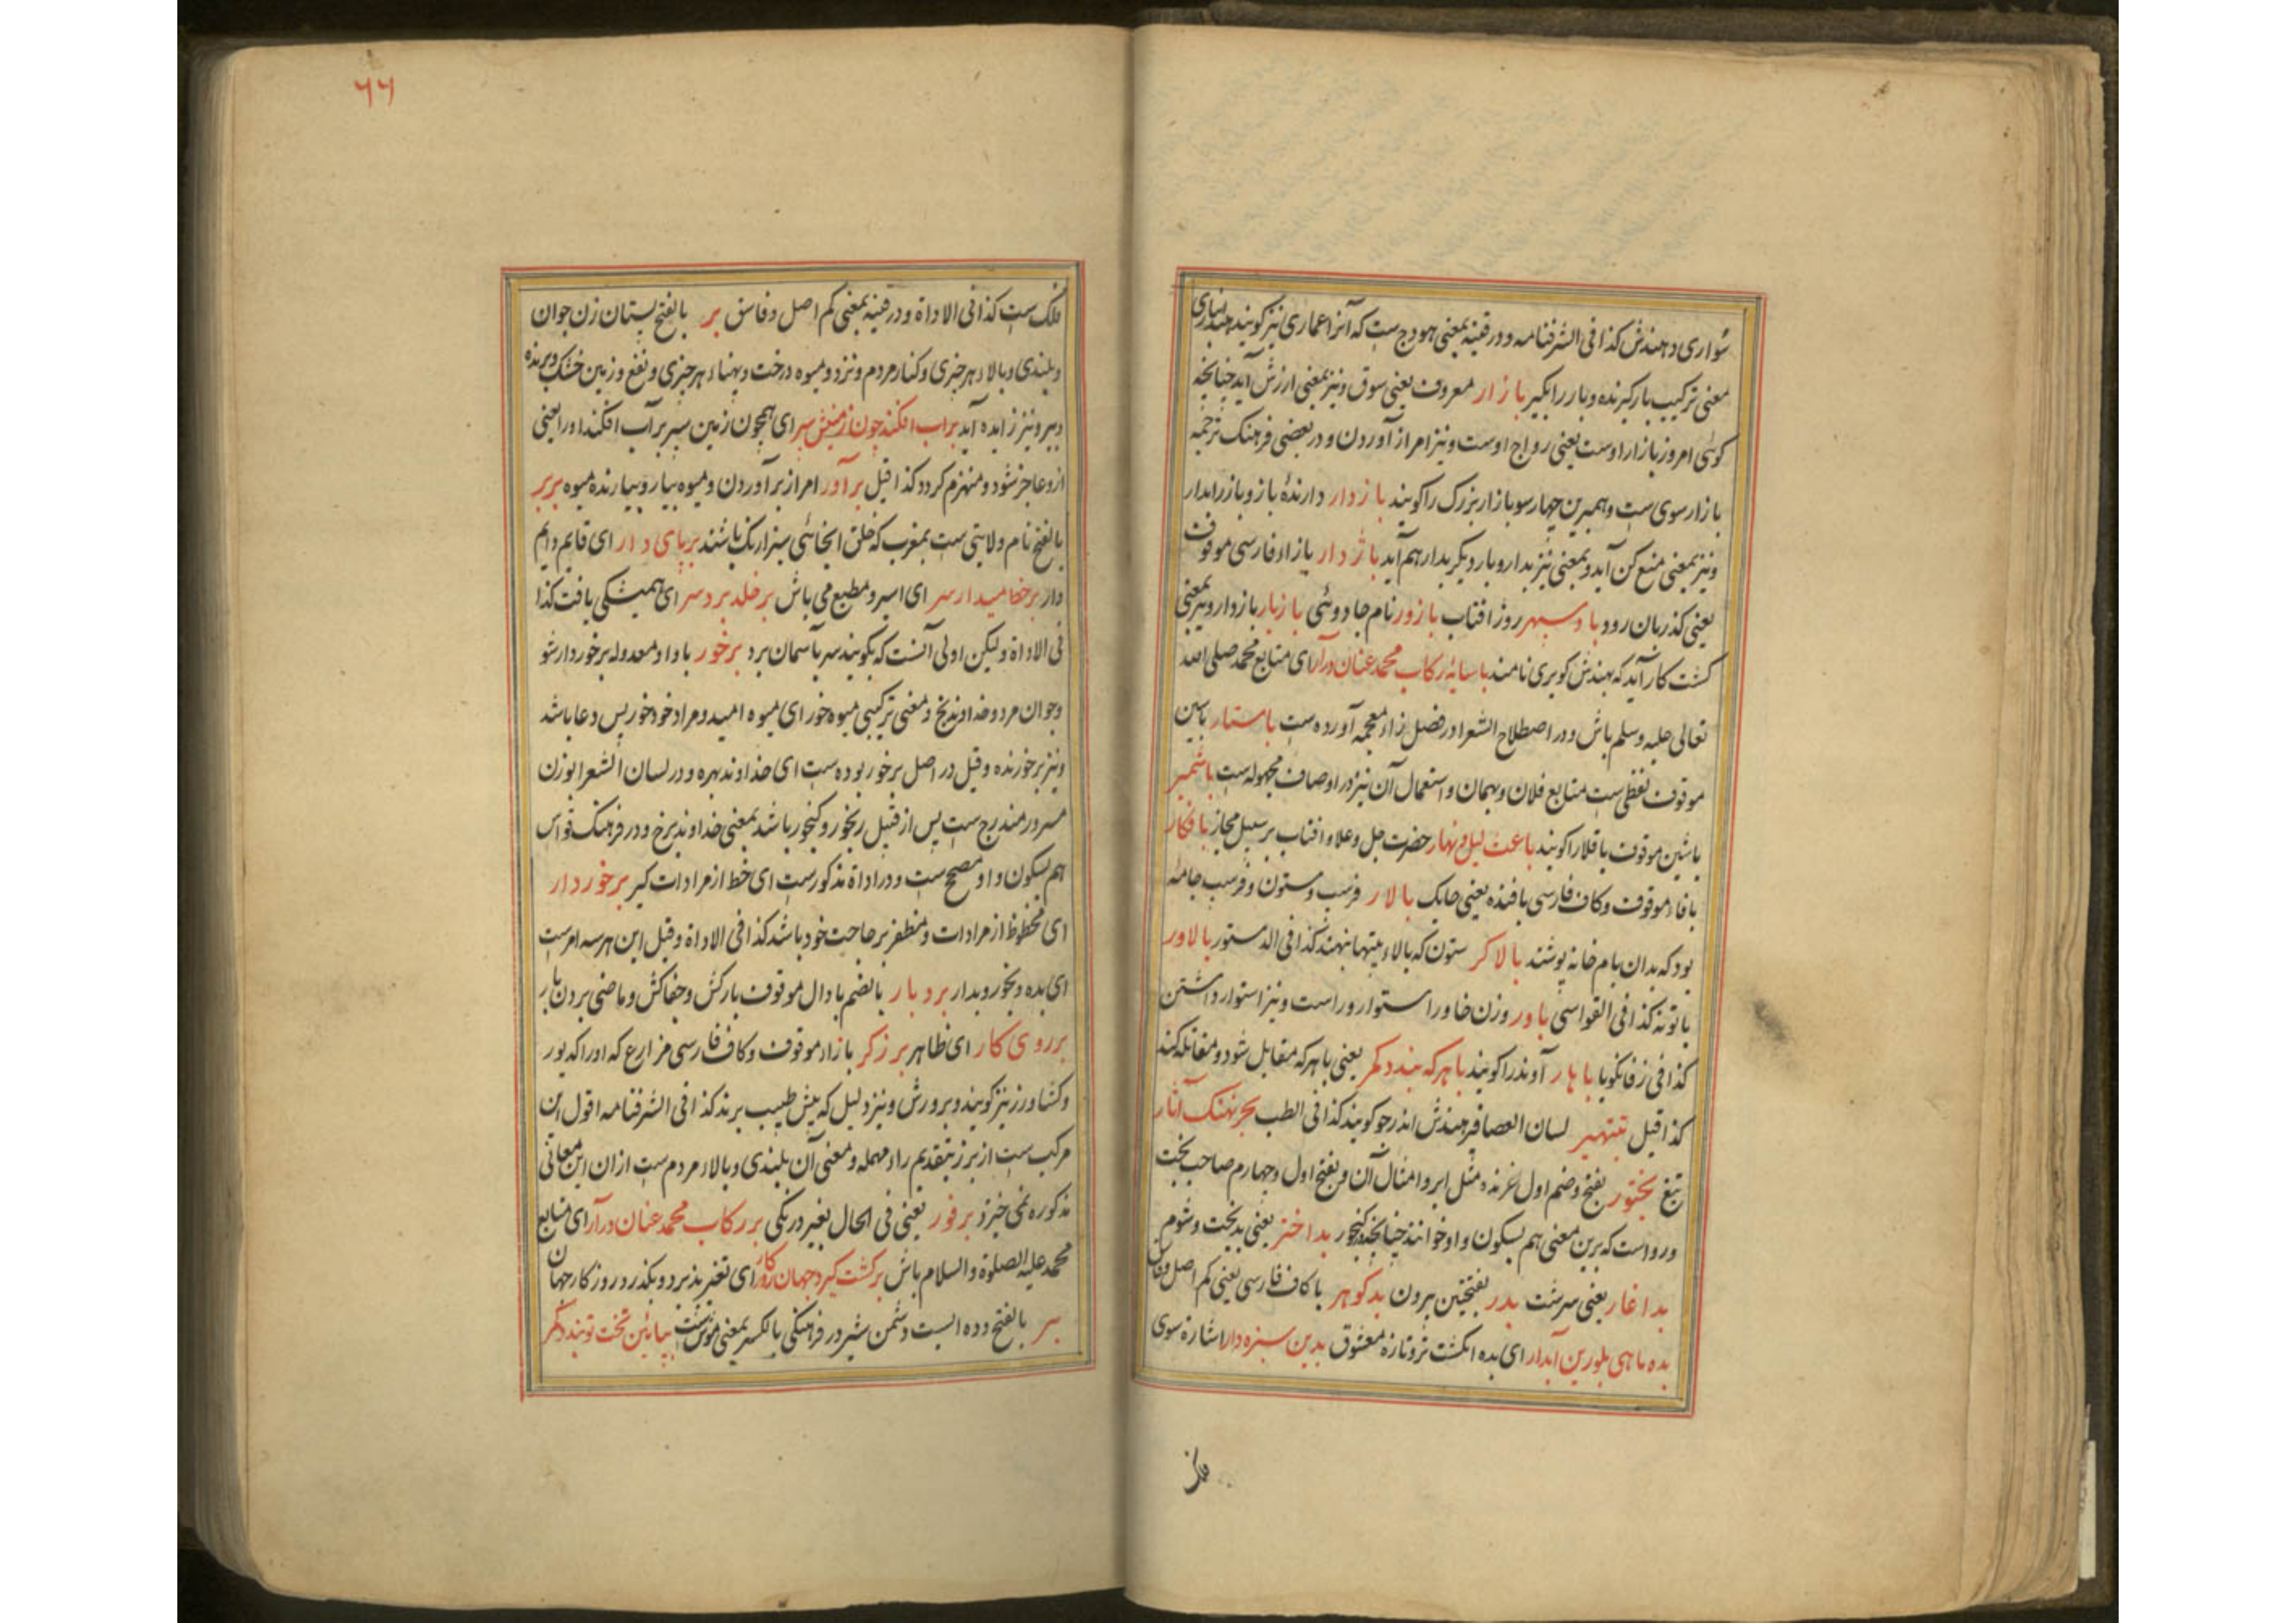 سواری و هندش کذا فی الشرفنامه و در قنیه بمعنی هودج ست که آنرا عماری نیز گویند
معنی ترکیب بار گیرنده و بار را بگیر بازار معروف یعنی سوق و نیز بمعنی ارزش آید چنانچه
گوئی امروز بازار اوست یعنی رواج اوست و نیز امر از آوردن و در بعضی فرهنک ترجمه
بازار سوی ست و همبرین چهار سو بازار بزرک را گویند بازدار دارندهٔ باز و باز را بدار
و نیز بمعنی منع کن آید و بمعنی نیز بدار و بار دیگر بدار هم آید باژدار بازاء فارسی موقوف
یعنی گذربان رود باد سپهر روز افتاب بازور نام جادوئی بازیار بازدار و نیز بمعنی
کشت کار آید که بهندش کویری نامند با سایهٔ رکاب محمد عنان درآر ای متابع محمد صلی الله
تعالی علیه وسلم باش و در اصطلاح الشعرا در فصل زاء معجمه آورده ست باستار باسین
موقوف لفظی ست متابع فلان و بهمان و استعمال آن نیز در اوصاف مجهوله ست باشمیر
باشین موقوف باقلا را گویند باعث لیل و نهار حضرت جل و علا و افتاب بر سبیل مجاز بافکار
بافاء موقوف و کاف فارسی بافنده یعنی جایک بالار فرسب و ستون و فرسب جامه
بود که بدان بام خانه پوشند بالاکر ستون که بالاء بیتها نهند کذا فی الدستور بالاور
کذا فی القواسی باور وزن خاور استوار و راست و نیز استوار داشتن
کذا فی زفانگویا باهار آوند را گویند با هر که بیند دکر یعنی با هر که مقابل شود و مقابله کند
کذا قیل لسان العصافیر هندش اندرجو گویند کذا فی الطب بحر نهنک آثار
تیغ بختور بفتح و ضم اول غرنده مثل ابر و امثال آن و بفتح اول و چهارم صاحب بخت
و رواست که برین معنی هم بسکون واو خوانند چنانچه گنجور بد اختر یعنی بدبخت و شوم
بد اغار یعنی سرشت بدر بفتحتین بیرون بدکوهر با کاف فارسی یعنی کم اصل
بده ماهی بلورین آبدار ای بده انکشت تر و تازه معشوق بدین سبزه دار اشارة سوی
فلک
٦٦
فلک ست کذا فی الاداة و در قنیه بمعنی کم اصل و فاسق بر بالفتح پستان زن جوان
و بلندی و بالاء هر چیزی و کنار مردم و نزد و میوه درخت و پهناء هر چیزی و نفع و زمین خشک و برنده
و بیر و نیز زایده آید بر اب افکند چون زمینش سپر ای همچون زمین سپر بر آب افکند او را یعنی
ازو عاجز شود و منهزم کردد کذا قیل بر آور امر از بر آوردن و میوه بیار و بیارنده میوه بربر
بالفتح نام ولایتی ست بمغرب که خلق انجائی سبزارنک باشند برپای دار ای قایم و دایم
دار برخط میدار سر ای اسیر و مطیع می باش بر خلد برد سر ای همیشکی یافت کذا
فی الاداة ولیکن اولی آنست که بگویند سر بآسمان برد برخور باواو معدوله برخوردار شو
و جوان مرد و خداوند بخ و معنی ترکیبی میوه خور ای میوه امید و مراد خود خور پس دعا باشد
و نیز برخورنده و قیل در اصل برخور بوده ست ای خداوند بهره و در لسان الشعرا بوزن
مسرور مندرج ست پس از قبیل رنجور و گنجور باشد بمعنی خداوند برخ و در فرهنک قواس
هم بسکون واو مصحح ست و در اداة مذکور ست ای خط از مرادات گیر برخوردار
ای محظوظ از مرادات و مظفر بر حاجت خود باشد کذا فی الاداة و قیل این هر سه امرست
ای بده و بخور و بدار بردبار بالضم بادال موقوف بارکش و جفاکش و ماضی بردن بار
برروی کار ای ظاهر برزکر بازاء موقوف و کاف فارسی مزارع که اورا اکدیور
و کشاورز نیز گویند و برورش و نیز دلیل که پیش طبیب برند کذا فی الشرفنامه اقول این
مرکب ست از برز بتقدیم راء مهمله و معنی آن بلندی و بالاء مردم ست از ان این معانی
مذکوره نمی خیزد برفور یعنی فی الحال بغیر درنکی بر رکاب محمد عنان درآر ای متابع
محمد علیه الصلوة والسلام باش برکشت گیرد جهان روزکار ای تغیر پذیرد و بگذرد روزکار جهان
ببر بالفتح و ده الست دشمن شیر و در فرهنگی بالکسر بمعنی موش ست بپایین تخت تو بنده کر